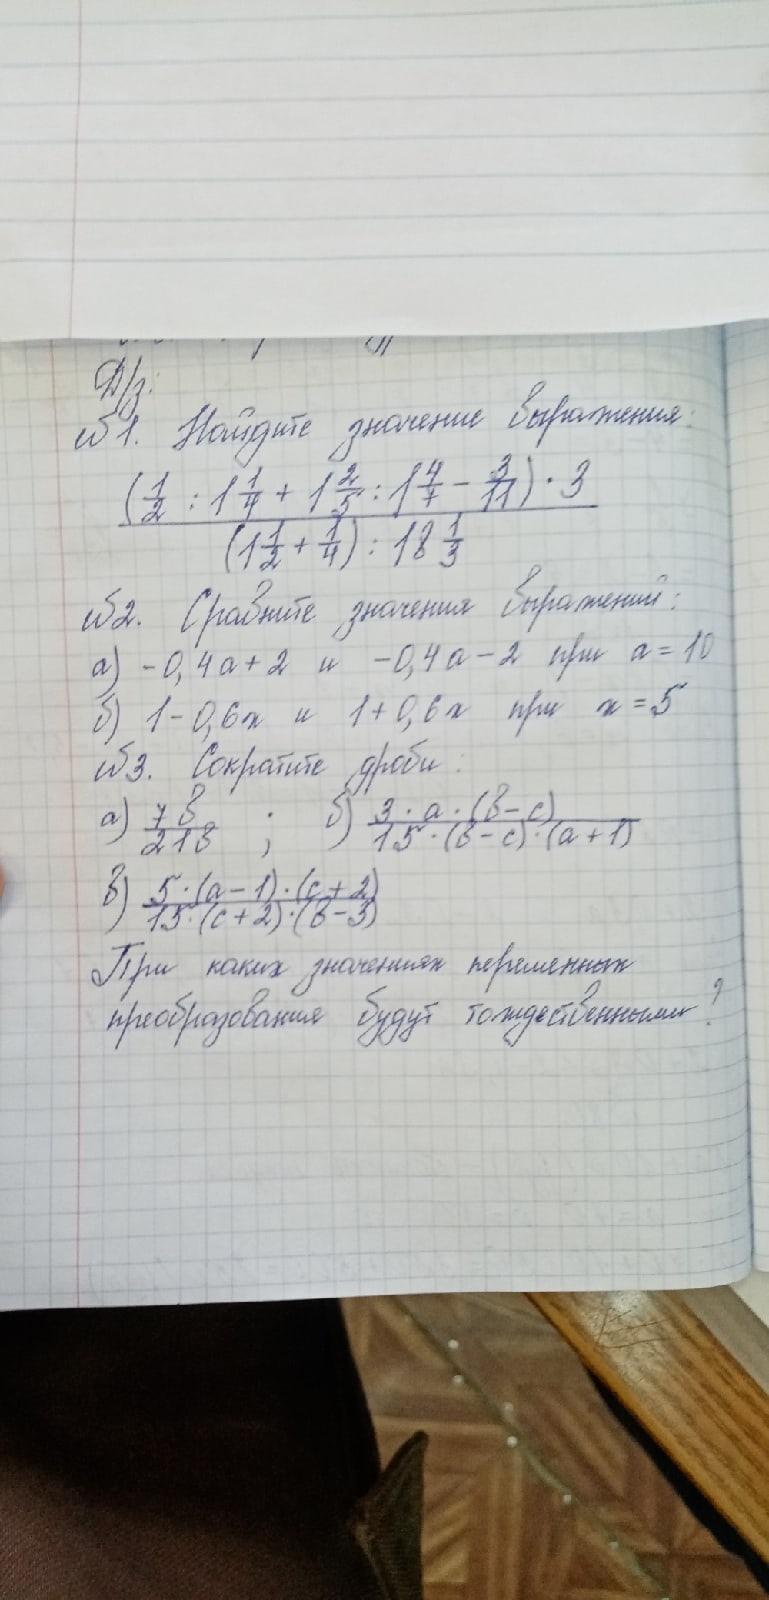 Д/з:
№1. Найдите значение выражения:
(1/2 : 1 1/4 + 1 2/5 : 1 4/7 - 3/11) · 3
(1 1/2 + 1/4) : 18 1/3
№2. Сравните значения выражений:
а) -0,4а+2 и -0,4а-2 при а=10
б) 1-0,6х и 1+0,6х при х=5
№3. Сократите дроби:
а) 7в/21в ; б) 3·а·(в-с)/15·(в-с)·(а+1)
в) 5·(а-1)·(с+2)/15·(с+2)·(в-3)
При каких значениях переменных
преобразования будут тождественными?